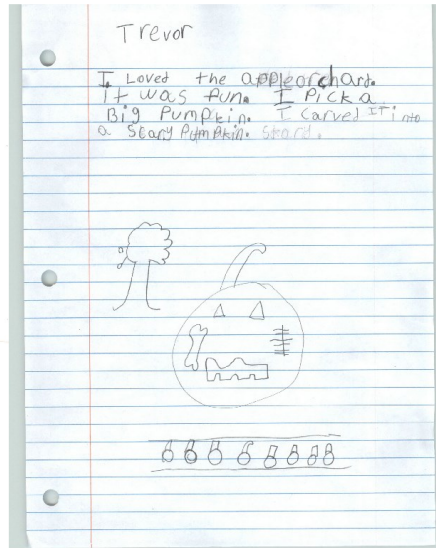 Trevor
I Loved the appleorchard.
it was fun. I Pick a
Big Pumpkin. I carved IT into
a scary Pumpkin.